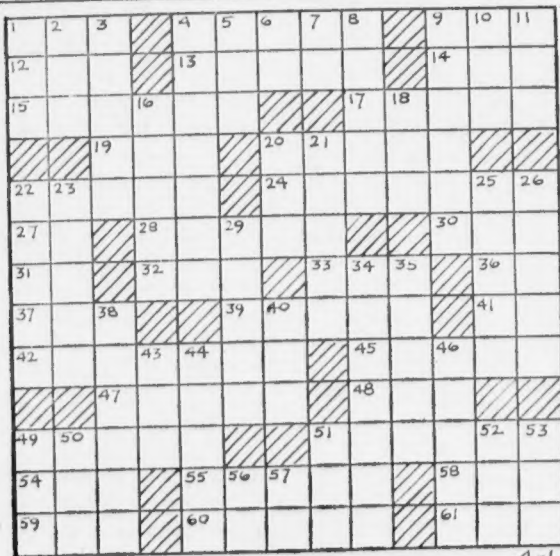 1 2 3 4 5 6 7 8 9 10 11
12 13 14
15 16 17 18
19 20 21
22 23 24 25 26
27 28 29 30
31 32 33 34 35 36
37 38 39 40 41
42 43 44 45 46
47 48
49 50 51 52 53
54 55 56 57 58
59 60 61